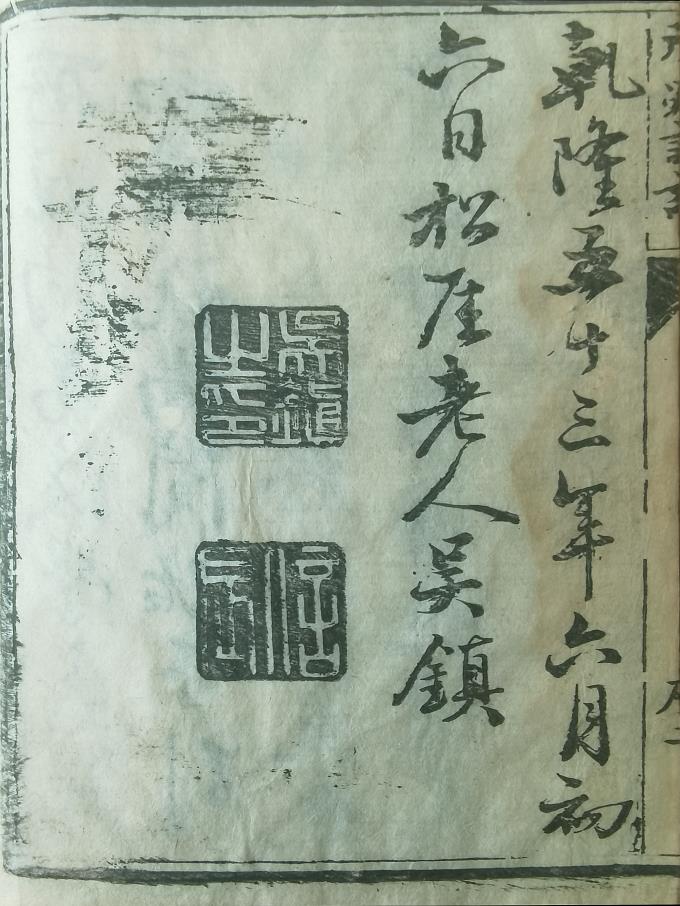 乾隆五十三年六月初
六日松厓老人吳鎮
吳鎮之印
信古